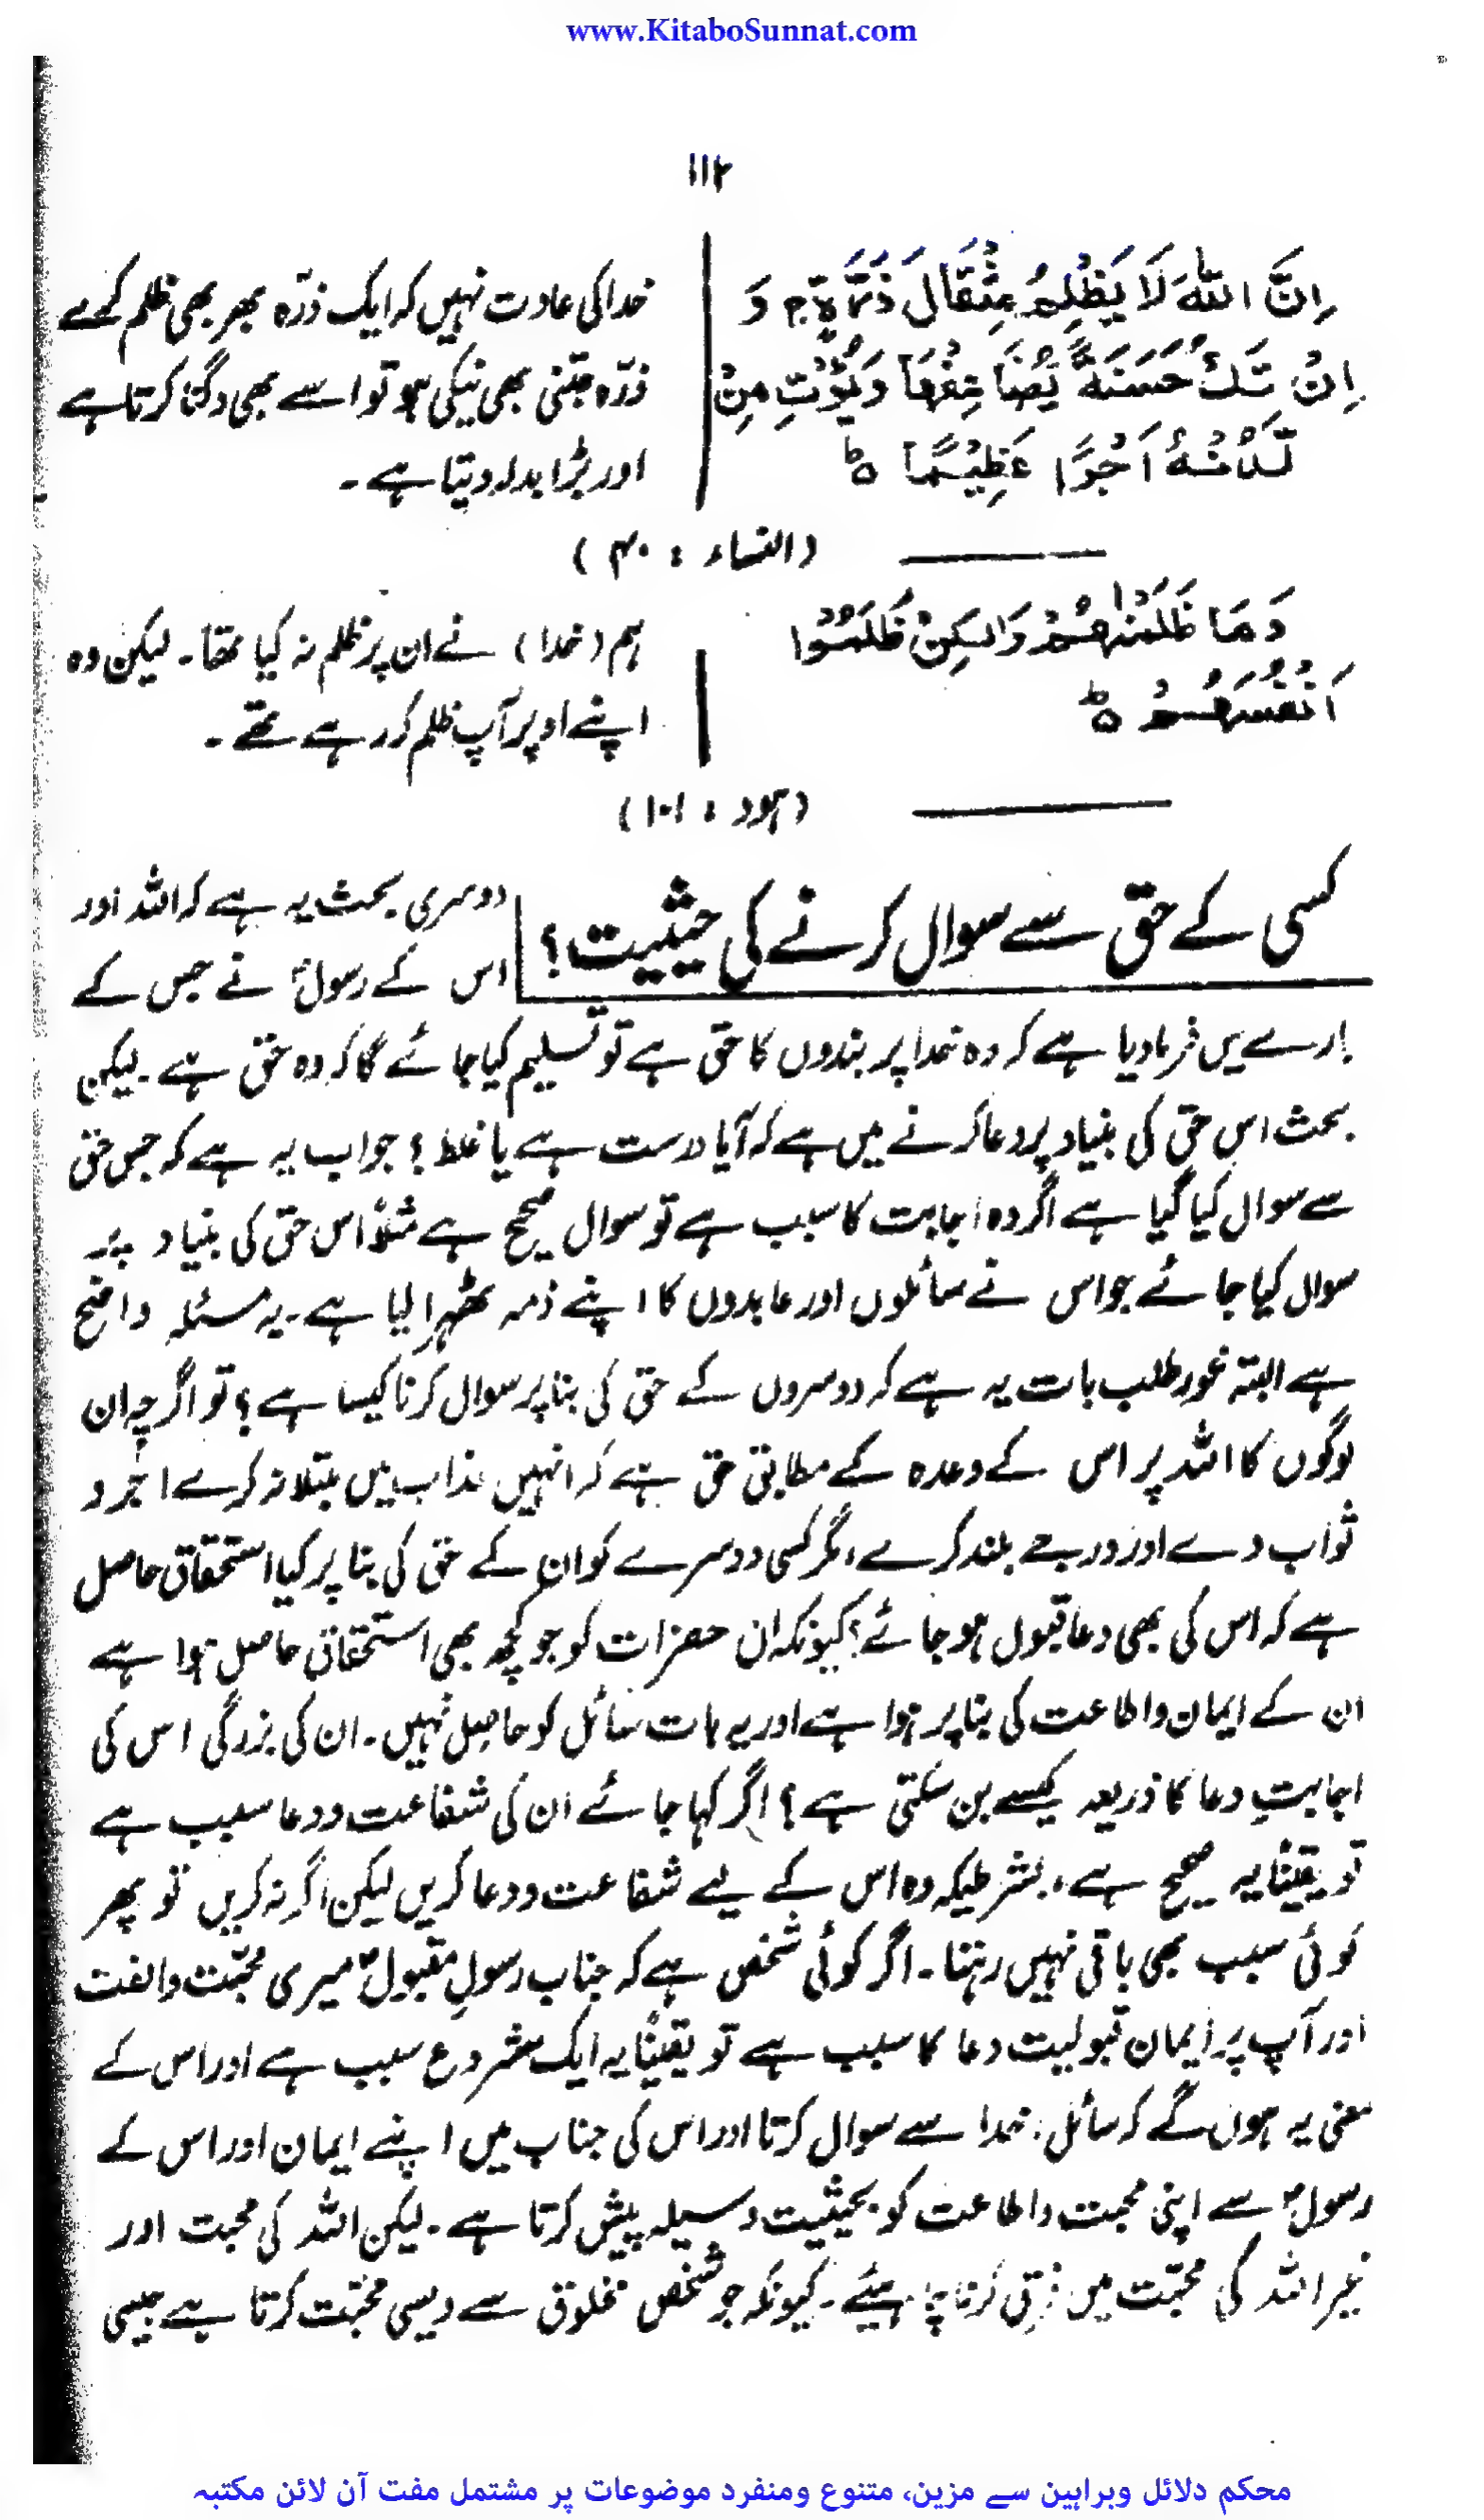 www.KitaboSunnat.com
۱۱۲
اِنَّ اللّٰهَ لَا يَظْلِمُ مِثْقَالَ ذَرَّةٍ ۚ وَ
اِنْ تَكُ حَسَنَةً يُّضَاعِفْهَا وَيُؤْتِ مِنْ
لَّدُنْهُ اَجْرًا عَظِيْمًا ۝ط
خدا کی عادت نہیں کہ ایک ذرّہ بھر بھی ظلم کرے
ذرّہ جتنی بھی نیکی ہو تو اسے بھی دگنا کرتا ہے
اور بڑا بدلہ دیتا ہے ۔
(النساء : ۴۰)
وَمَا ظَلَمْنٰهُمْ وَلٰكِنْ ظَلَمُوْا
اَنْفُسَهُمْ ۝ط
ہم (خدا) نے ان پر ظلم نہ کیا تھا ۔ لیکن وہ
اپنے اوپر آپ ظلم کر رہے تھے ۔
(ہود : ۱۰۱)
کسی کے حق سے سوال کرنے کی حیثیت؟
دوسری بحث یہ ہے کہ اللہ اور
اس کے رسولؐ نے جس کے
بارے میں فرما دیا ہے کہ وہ خدا پر بندوں کا حق ہے تو تسلیم کیا جائے گا کہ وہ حق ہے ۔ لیکن
بحث اس حق کی بنیاد پر دعا کرنے میں ہے کہ آیا درست ہے یا غلط ؟ جواب یہ ہے کہ جس حق
سے سوال کیا گیا ہے اگر وہ اجابت کا سبب ہے تو سوال صحیح ہے مثلاً اس حق کی بنیاد پر
سوال کیا جائے جو اس نے سائلوں اور عابدوں کا اپنے ذمہ ٹھہرا لیا ہے ۔ یہ مسئلہ واضح
ہے البتہ غور طلب بات یہ ہے کہ دوسروں کے حق کی بنا پر سوال کرنا کیسا ہے ؟ تو اگرچہ ان
لوگوں کا اللہ پر اس کے وعدہ کے مطابق حق ہے کہ انہیں عذاب میں مبتلا نہ کرے اجر و
ثواب دے اور درجے بلند کرے ، مگر کسی دوسرے کو ان کے حق کی بنا پر کیا استحقاق حاصل
ہے کہ اس کی بھی دعا قبول ہو جائے ؟ کیونکہ ان حضرات کو جو کچھ بھی استحقاق حاصل ہوا ہے
ان کے ایمان و اطاعت کی بنا پر ہوا ہے اور یہ بات سائل کو حاصل نہیں ۔ ان کی بزرگی اس کی
اجابتِ دعا کا ذریعہ کیسے بن سکتی ہے ؟ اگر کہا جائے ان کی شفاعت و دعا سبب ہے
تو یقیناً یہ صحیح ہے ، بشرطیکہ وہ اس کے لیے شفاعت و دعا کریں لیکن اگر نہ کریں تو پھر
کوئی سبب بھی باقی نہیں رہتا ۔ اگر کوئی شخص ہے کہ جناب رسولِ مقبولؐ میری محبّت و الفت
اور آپ پر ایمان قبولیت دعا کا سبب ہے تو یقیناً یہ ایک مشروع سبب ہے اور اس کے
معنی یہ ہوں گے کہ سائل خدا سے سوال کرتا اور اس کی جناب میں اپنے ایمان اور اس کے
رسولؐ سے اپنی محبت و اطاعت کو بحیثیت وسیلہ پیش کرتا ہے ۔ لیکن اللہ کی محبت اور
غیر اللہ کی محبّت میں فرق کرنا چاہیئے ۔ کیونکہ جو شخص مخلوق سے ویسی محبّت کرتا ہے جیسی
محکم دلائل وبراہین سے مزین، متنوع ومنفرد موضوعات پر مشتمل مفت آن لائن مکتبہ